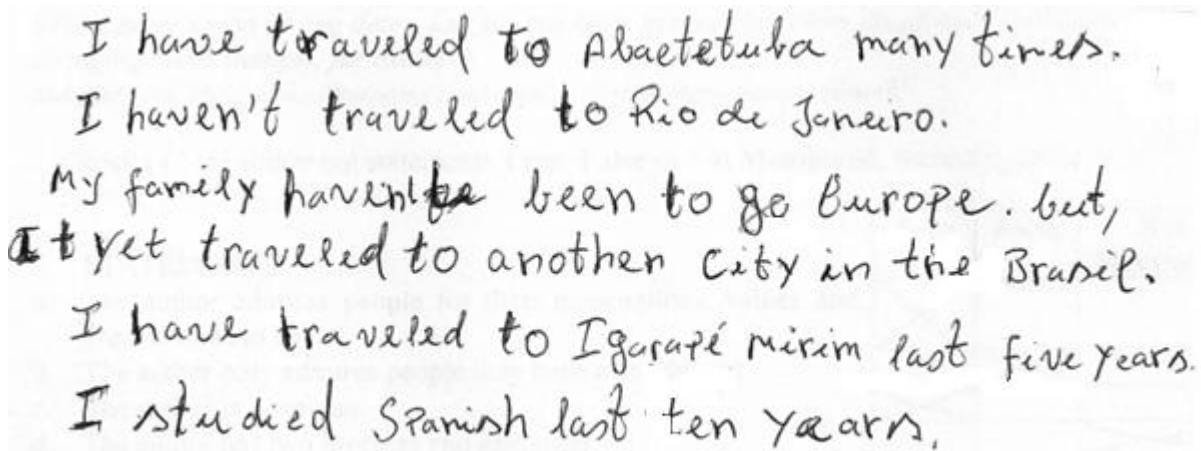 I have traveled to Abaetetuba many times.
I haven't traveled to Rio de Janeiro.
My family haven't been to go Europe. but,
It yet traveled to another City in the Brasil.
I have traveled to Igarapé Mirim last five years.
I studied Spanish last ten years.